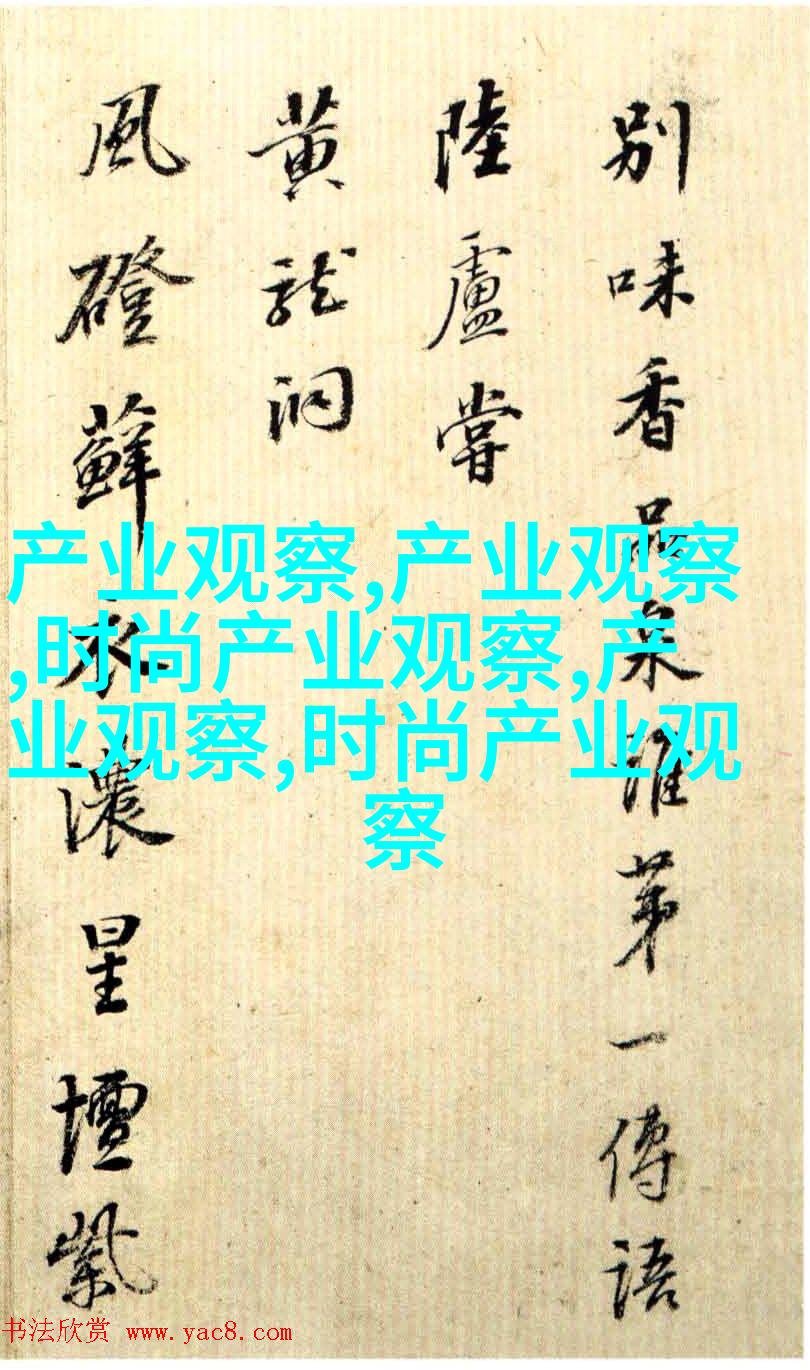 别味香品泉谁第一傳語
陸盧嘗
黄龍洞
風磴蘚衣濃星壇紫
产业观察,产业观察
,时尚产业观察,产
业观察,时尚产业观
察
书法欣赏 www.yac8.com